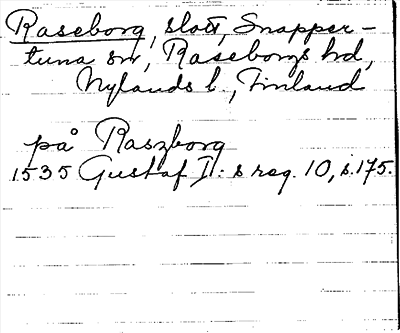 Raseborg, slott, Snapper-
tuna sn, Raseborgs hd,
Nylands l., Finland
på Raszborg
1535 Gustaf I: s reg. 10, s. 175.